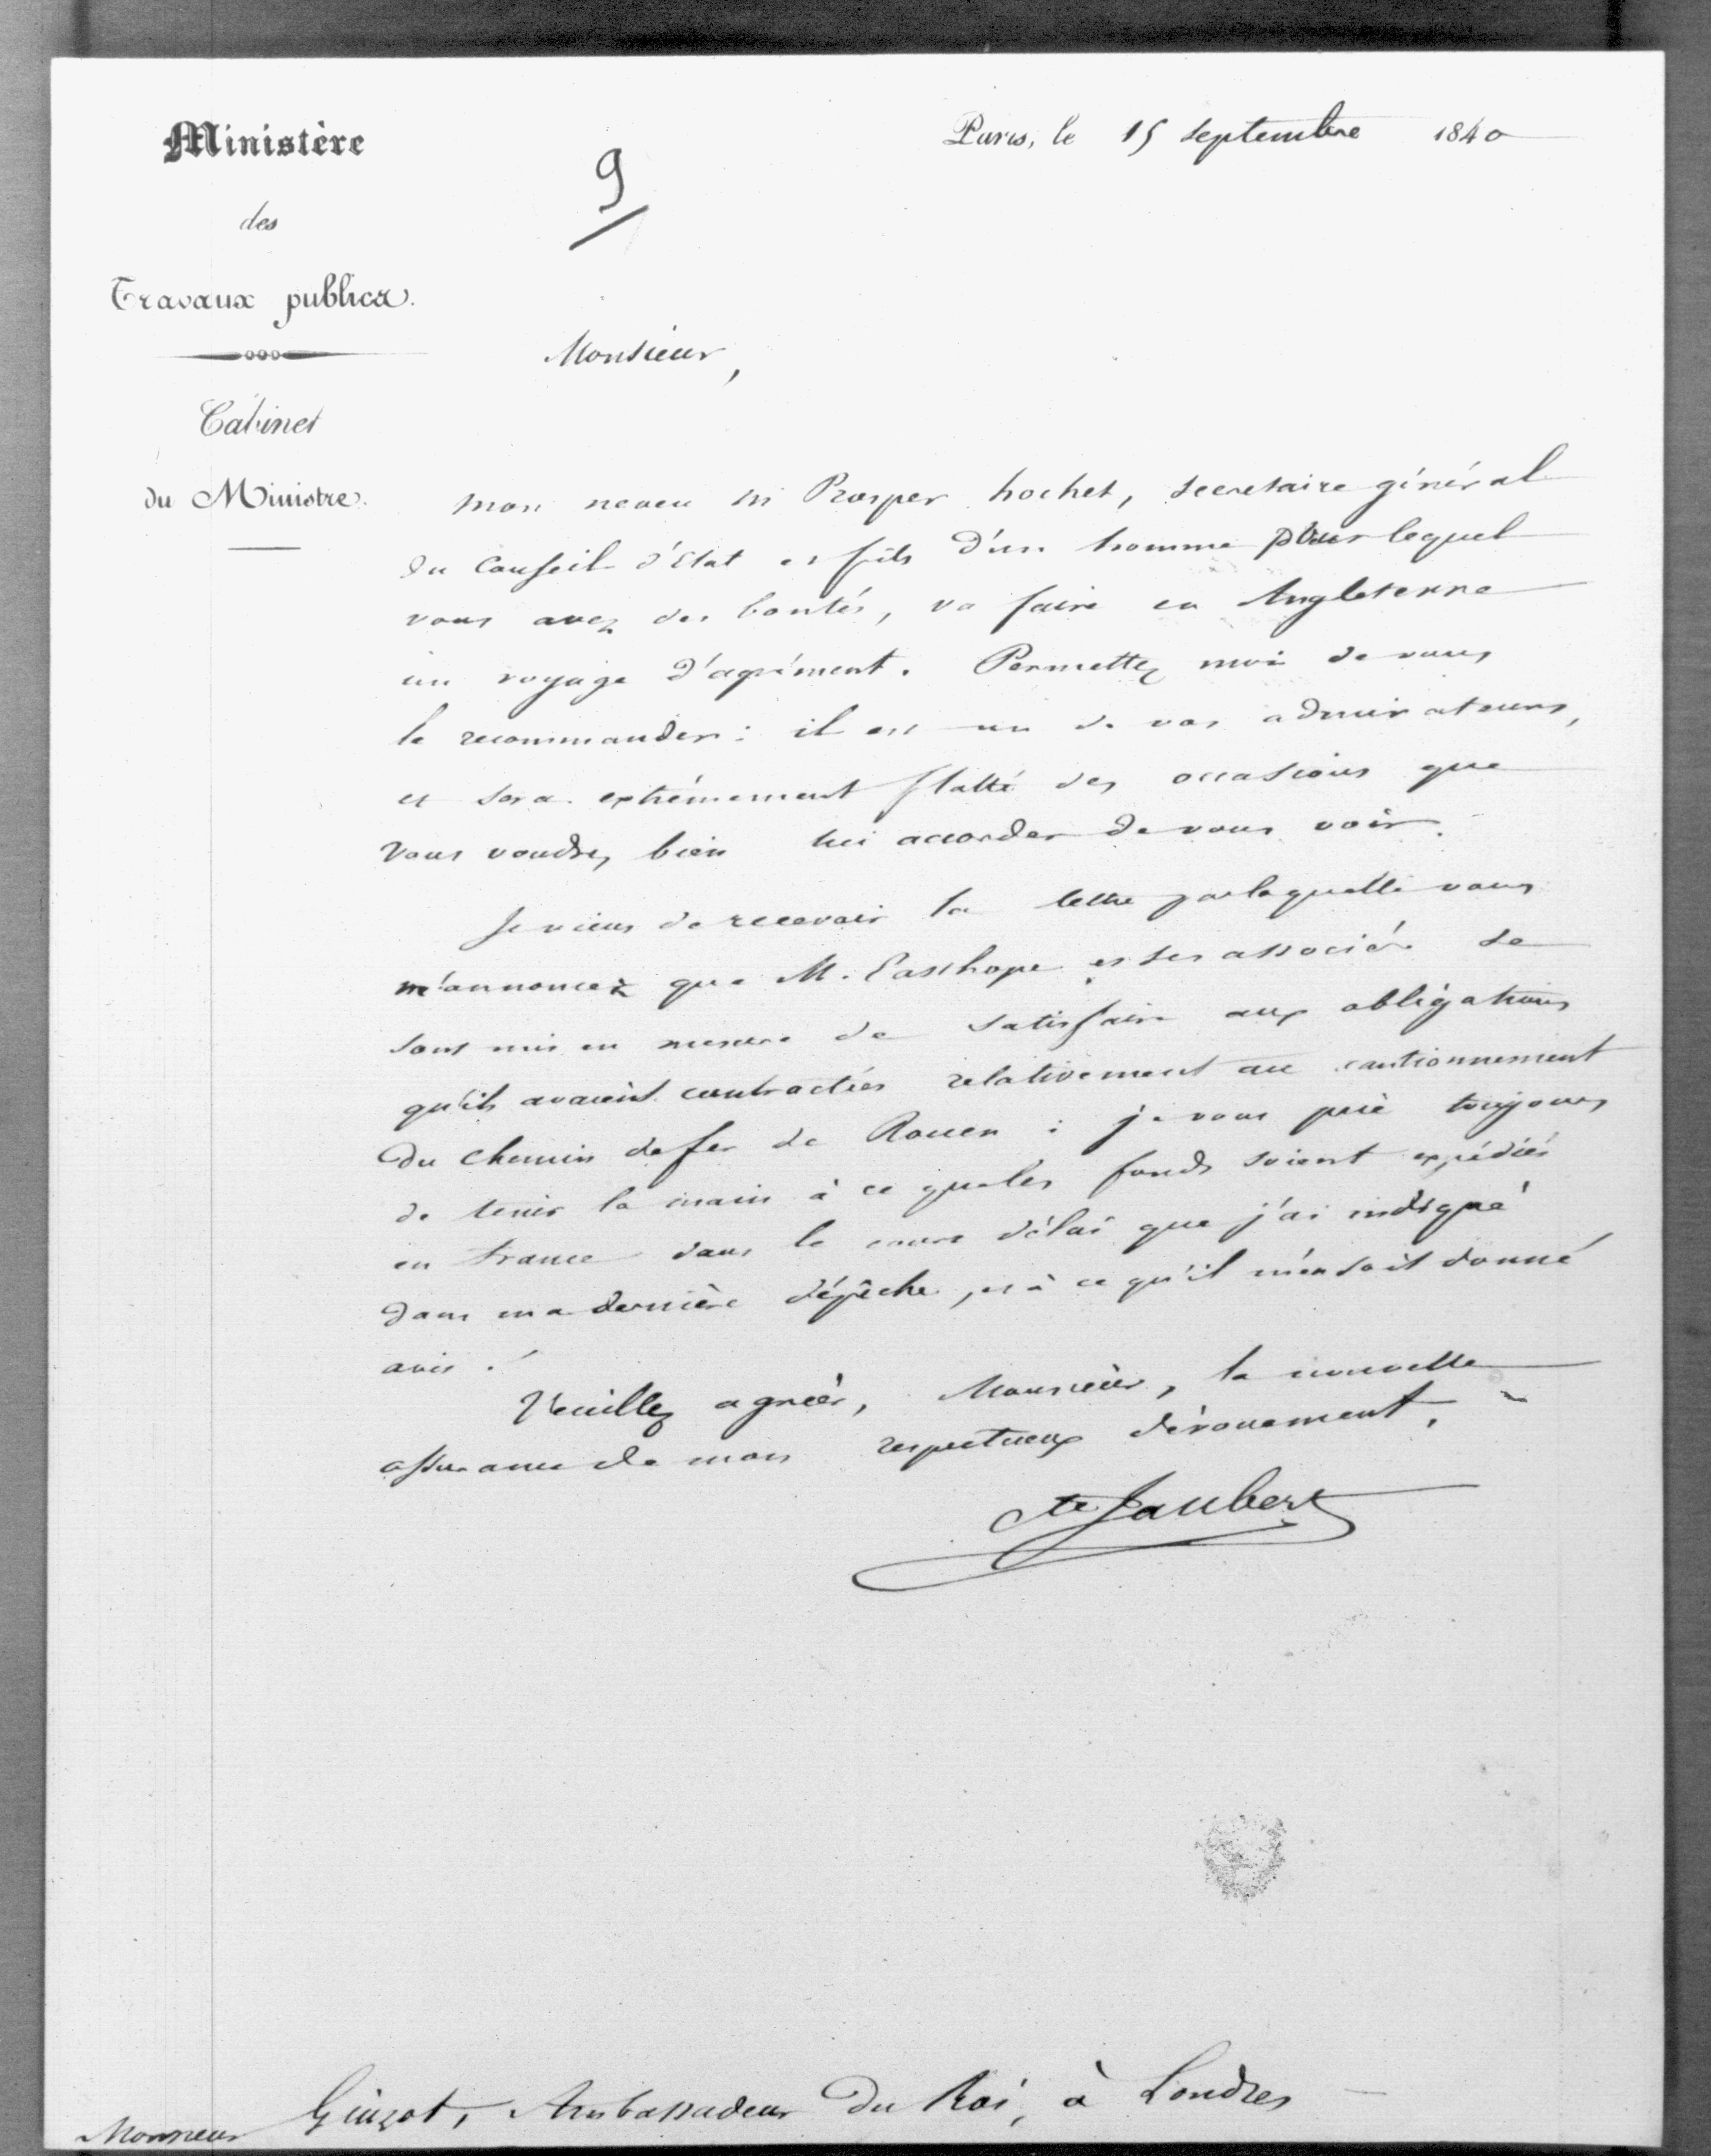 Ministère
des
Travaux publics.
Cabinet
du Ministre.
Paris, le 15 septembre 1840
9
Monsieur,
mon neveu M Prosper hochet, secretaire général
du Conseil d'Etat et fils d'un homme pour lequel
vous avez des bontés, va faire en Angleterre
un voyage d'agrément. Permettez moi de vous
le recommander : il est un de vos admirateurs,
et sera extrêmement flatté des occasions que
vous voudrez bien lui accorder de vous voir.
Je viens de recevoir la lettre par laquelle vous
m'annoncez que M. Easthope et ses associés se
sont mis en mesure de satisfaire aux obligations
qu'ils avaient contractées relativement au cautionnement
du chemin de fer de Rouen : je vous prie toujours
de tenir la main à ce que les fonds soient expédiés
en france dans le court délai que j'ai indiqué
dans ma dernière dépêche, et à ce qu'il m'en soit donné
avis.
Veuillez agréer, Monsieur, la nouvelle
assurance de mon respectueux dévouement,
Cte Jaubert
Monsieur Guizot, Ambassadeur du Roi, à Londres